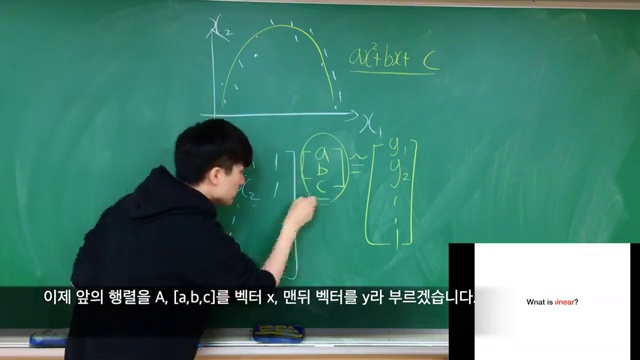 x₂
ax²+bx+ c
x₁
1
x₂ 1
a
b
c
≈
y₁
y₂
이제 앞의 행렬을 A, [a,b,c]를 벡터 x, 맨뒤 벡터를 y라 부르겠습니다.
What is linear?